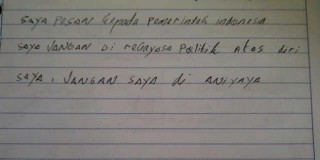 saya pesan kepada pemerintah indonesia
saya JANGAN Di rekayasa Politik Atas diri
SAYA, JANGAN SAYA di ANIYAYA